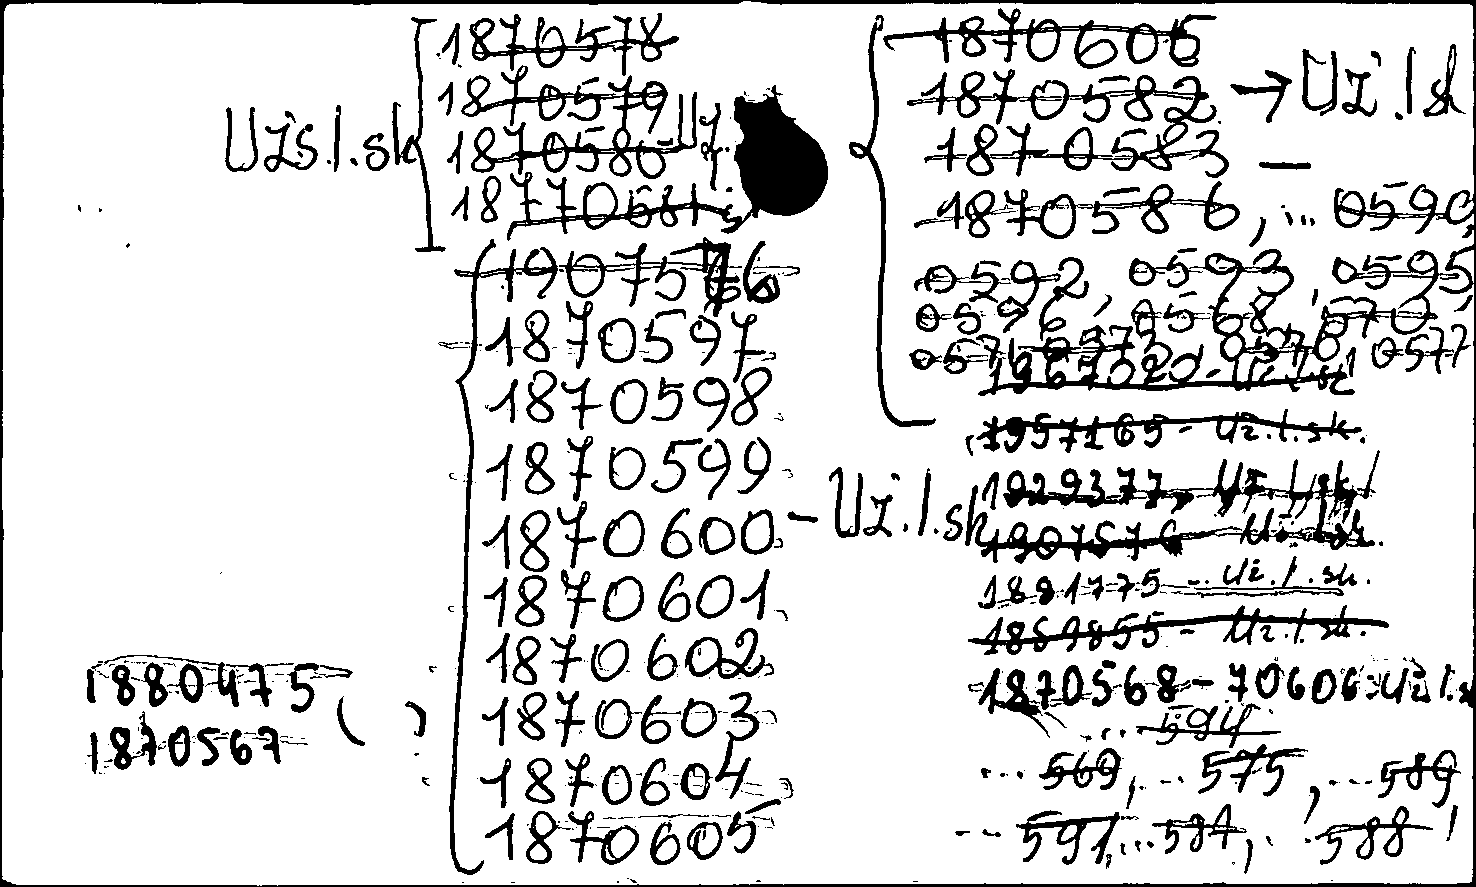 1870578
1870579
Užs.l.sk
1870580
18770581
1907576
1870597
1870598
1870599
1870600 - Už.l.sk
1870601
1870602
1870603
1870604
1870605
1880475
1870567
1870605
1870582 → Už.l.sk
1870583 —
1870586, ... 0590,
0592, 0593, 0595,
0596, 0568, 570,
0577
1957165 - Už.l.sk.
1929377, Už.l.sk
1907576 Už.l.sk.
1881775 - Už.l.sk.
1869855 - Už.l.sk.
1870568 - 70606 Už.l.s
... 594
... 569, ... 575, ... 589
... 591, ... 584, ... 588